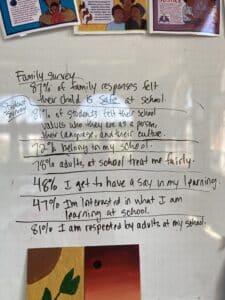 Family Survey
87% of family responses felt
their child is safe at school.
Student
Survey
81% of students felt their school
values who they are as a person,
their language, and their culture.
72% belong in my school.
78% adults at school treat me fairly.
48% I get to have a say in my learning.
47% I'm interested in what I am
learning at school.
81% I am respected by adults at my school.